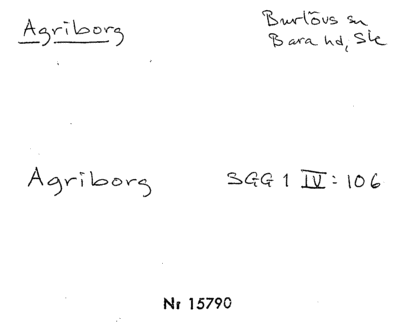 Agriborg
Burlövs sn
Bara hd, Sk
Agriborg
SGG 1 IV: 106
Nr 15790